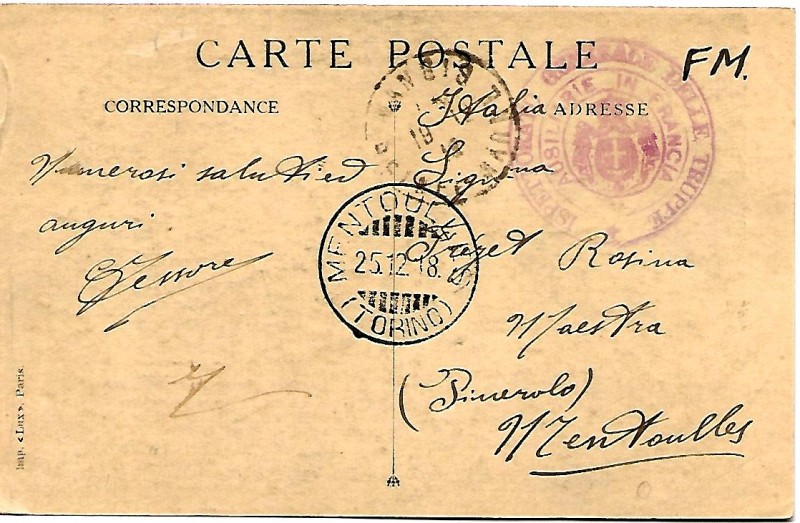 CARTE POSTALE
FM.
CORRESPONDANCE
ADRESSE
Numerosi saluti ed
auguri
Italia
Signora
Rosina
Maestra
(Pinerolo)
Mentoulles
MENTOULLES
25.12.18.
(TORINO)
GENERALE DELLE TRUPPE
AUSILIARIE IN FRANCIA
Imp. «Lux», Paris.